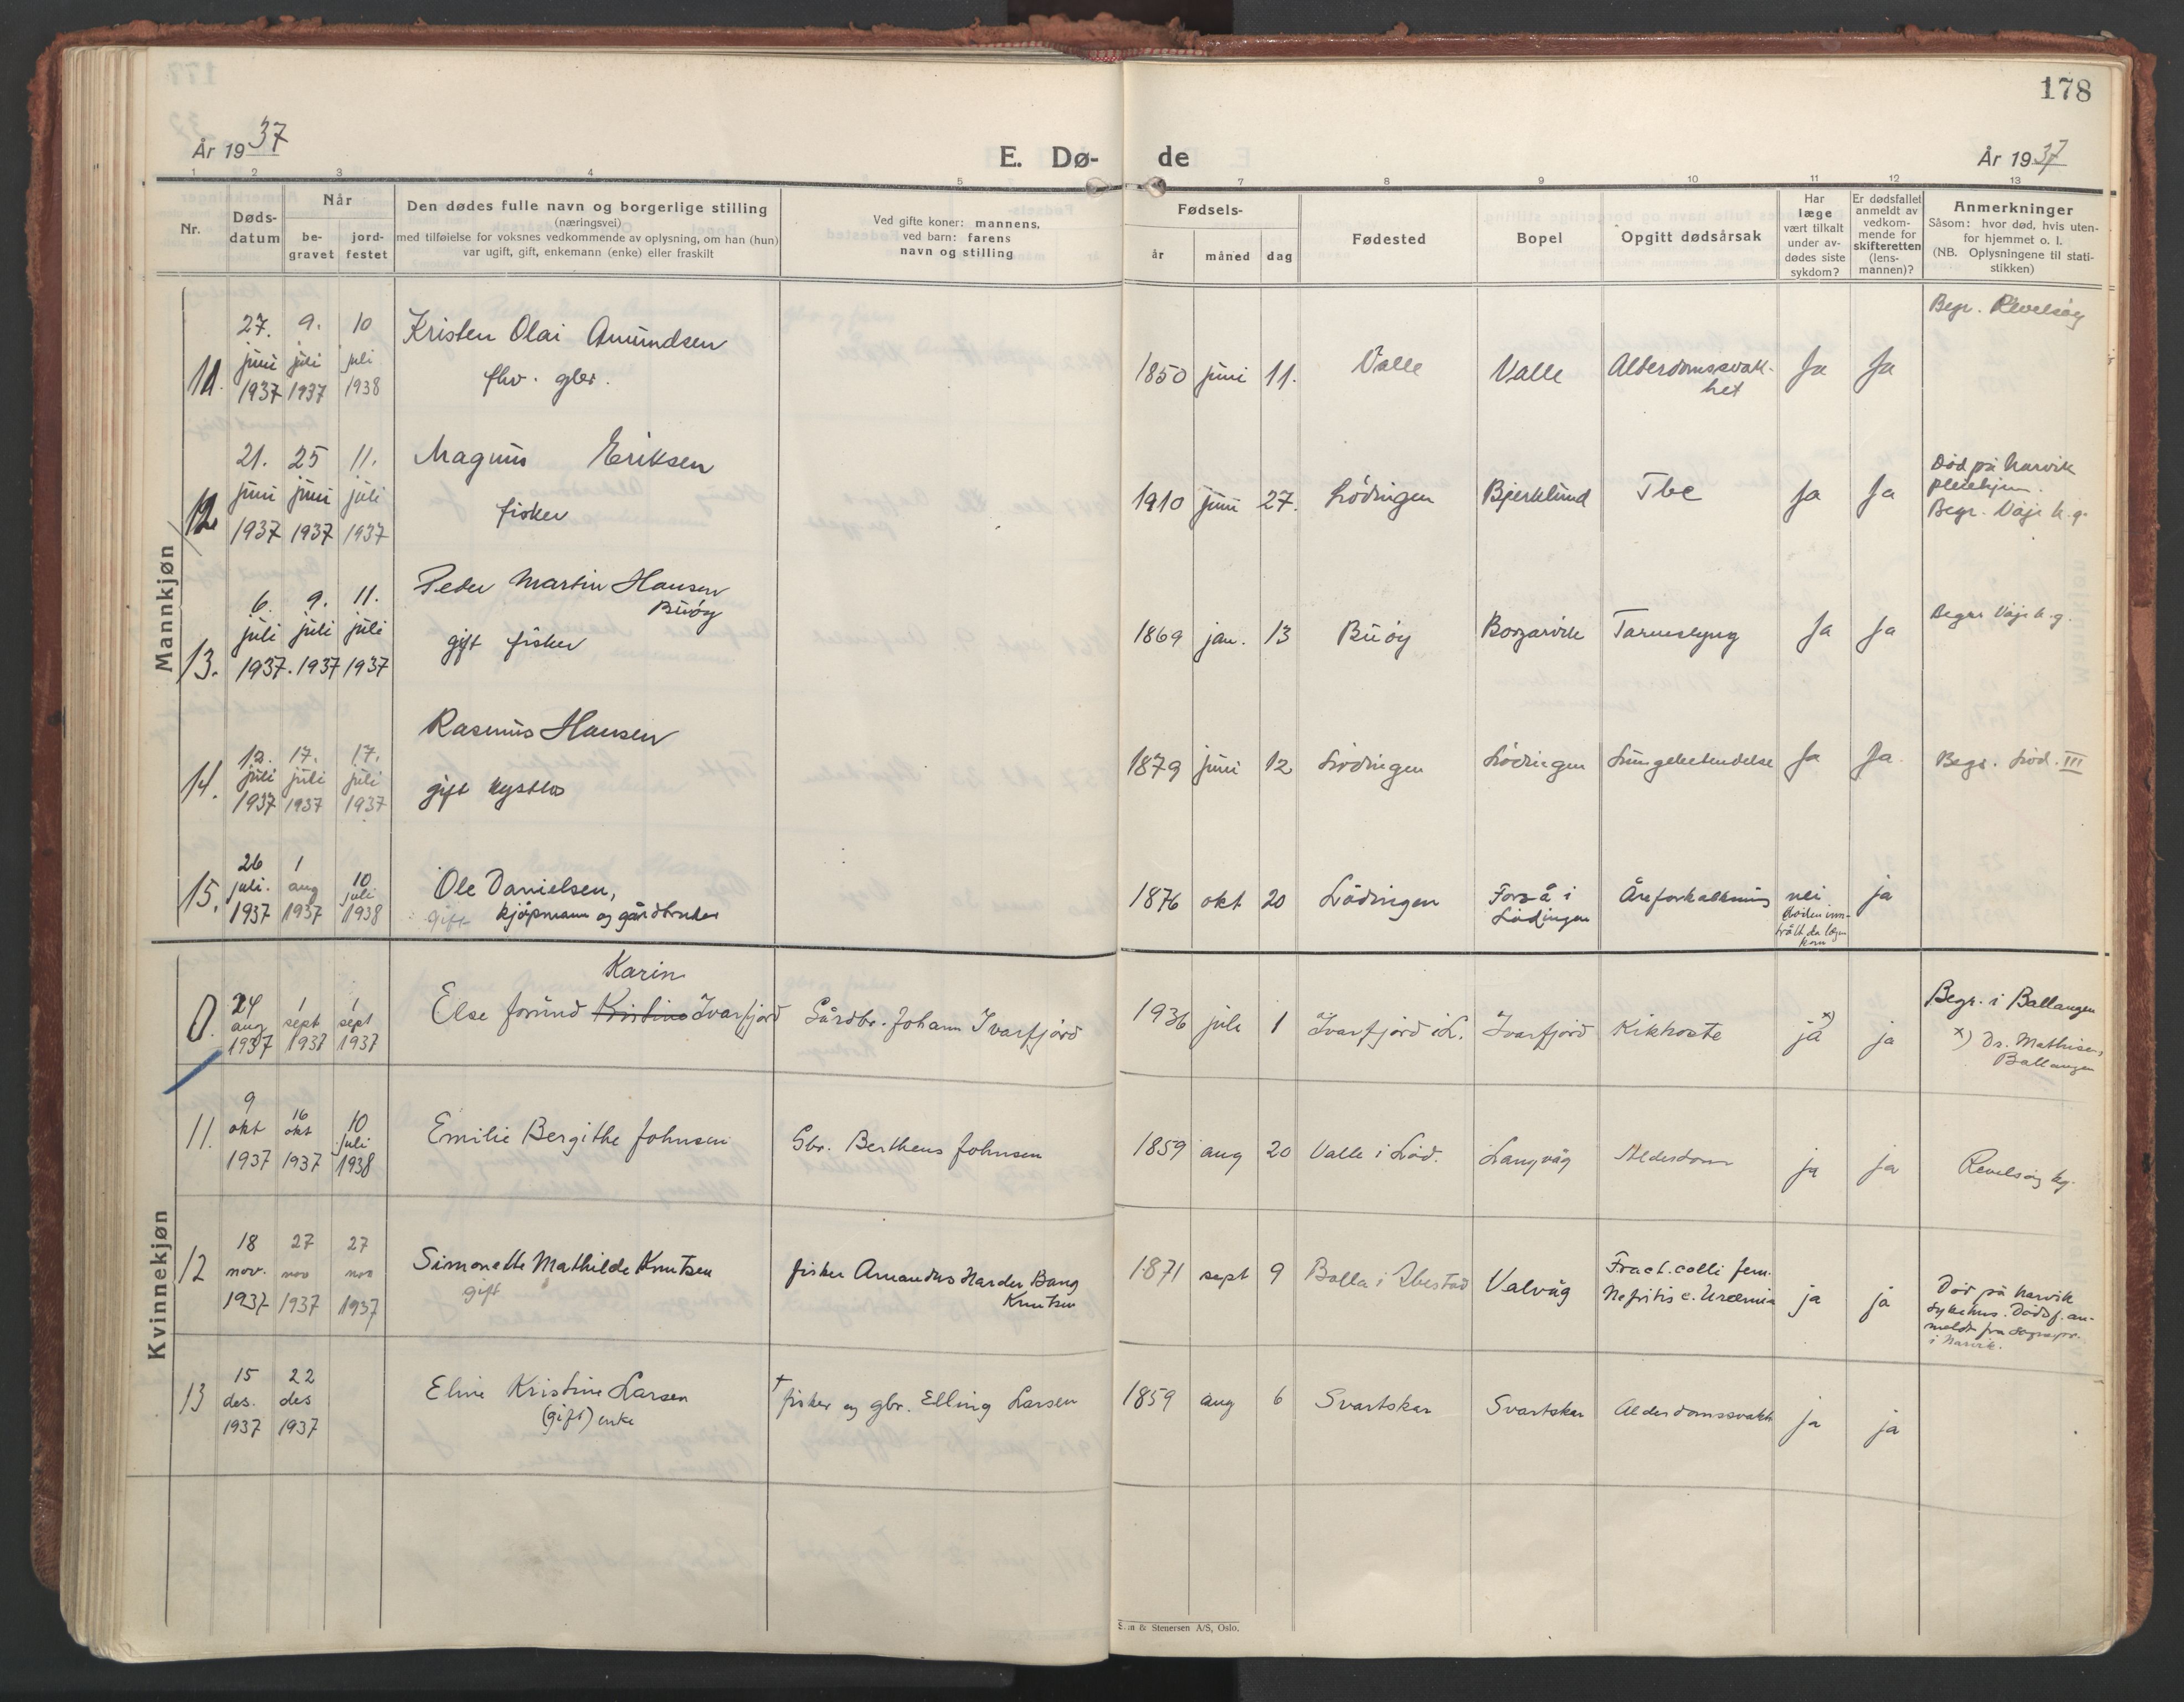 178
År 1937
E. Dø- de
År 1937
1 2 3 4 5 7 8 9 10 11 12 13
Nr.
Døds-
datum
Når
be-
gravet
jord-
festet
Den dødes fulle navn og borgerlige stilling
(næringsvei)
med tilføielse for voksnes vedkommende av oplysning, om han (hun)
var ugift, gift, enkemann (enke) eller fraskilt
Ved gifte koner: mannens,
ved barn: farens
navn og stilling
Fødsels-
år måned dag
Fødested
Bopel
Opgitt dødsårsak
Har
læge
vært tilkalt
under av-
dødes siste
sykdom?
Er dødsfallet
anmeldt av
vedkom-
mende for
skifteretten
(lens-
mannen)?
Anmerkninger
Såsom: hvor død, hvis uten-
for hjemmet o. l.
(NB. Oplysningene til stati-
stikken)
Mannkjøn
11.
27.
juni
1937
9.
juli
1937
10
juli
1938
Kristen Olai Amundsen
fhv. gbr.
1850 juni 11. Valle Valle Alderdomssvak-
het
Ja Ja
Begr. Revelsøy
12
21.
juni
1937
25
juni
1937
11.
juli
1937
Magnus Eriksen
fisker
1910 juni 27. Lødingen Bjerklund Tbc Ja Ja
Død på Narvik
pleiehjem.
Begr. Våje k.g.
13.
6.
juli
1937.
9.
juli
1937
11.
juli
1937
Peder Martin Hansen
Buøy
gift fisker
1869 jan. 13 Buøy Borgarvik Tarmslyng Ja Ja
Begr. Våje k.g.
14.
12.
juli
1937
17.
juli
1937
17.
juli
1937
Rasmus Hansen
gift
1879 juni 12 Lødingen Lødingen Lungebetendelse Ja Ja
Begr. Lød. III
15.
26
juli.
1937
1
aug
1937
10
juli
1938
Ole Danielsen,
gift kjøpmann og gårdbruker
1876 okt 20 Lödingen Forså i
Lödingen
Åreforkalkning
nei
döden inn-
trått da lægen
kom
ja
Kvinnekjøn
0.
24
aug
1937
1
sept
1937
1
sept
1937
Karin
Else Jorund Kristine Ivarfjord
Gårdbr. Johann Ivarfjord
1936 juli 1 Ivarfjord i L. Ivarfjord Kikhoste
ja x)
ja
Begr. i Ballangen
x) Dr. Mathisen,
Ballangen
11.
9
okt
1937
16
okt
1937
10
juli
1938
Emilie Bergithe Johnsen
Gbr. Bertheus Johnsen
1859 aug 20 Valle i Löd. Langvåg Alderdom ja ja
Revelsøy kg.
12
18
nov.
1937
27
nov
1937
27
nov
1937
Simonette Mathilde Knutsen
gift
fisker Amandus Harder Bang
Knutsen
1871 sept 9 Bolla i Ibestad Valvåg
Fract. colli fem.
Nefritis c. Uræmia
ja ja
Död på Narvik
sykehus. Dödsf. an-
meldt fra sognepr.
i Narvik.
13
15
des.
1937
22
des
1937
Eline Kristine Larsen
(gift) enke
† fisker og gbr. Elling Larsen
1859 aug 6 Svartskar Svartskar Alderdomssvakh ja ja
& Stenersen A/S, Oslo.